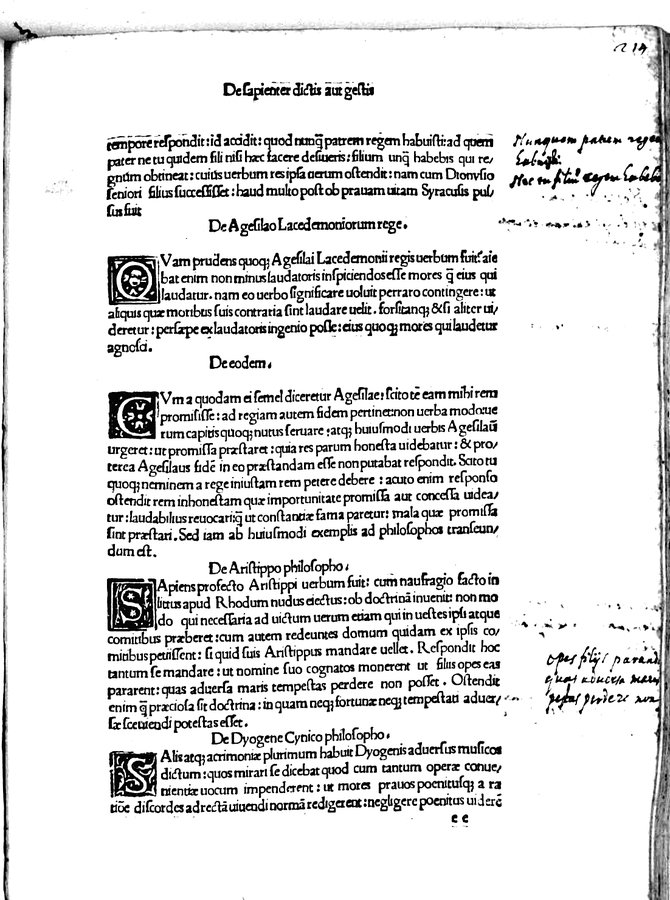 214
De sapienter dictis aut gestis
tempore respondit: id accidit: quod nunq̃ patrem regem habuisti: ad quem
pater ne tu quidem fili nisi hæc facere desueris: filium unq̃ habebis qui re/
gnum obtineat: cuius uerbum res ipsa uerum ostendit: nam cum Dionysio
seniori filius successisset: haud multo post ob prauam uitam Syracusis pul/
sus fuit
Nunquam patrem regem
habuisti
De Agesilao Lacedemoniorum rege.
QVam prudens quoq; Agesilai Lacedemonii regis uerbum fuit: aie
bat enim non minus laudatoris inspiciendos esse mores q̃ eius qui
laudatur. nam eo uerbo significare uoluit perraro contingere: ut
aliquis quæ moribus suis contraria sint laudare uelit. forsitanq; & si aliter ui/
deretur: persæpe ex laudatoris ingenio posse: eius quoq; mores qui laudetur
agnosci.
De eodem.
CVm a quodam ei semel diceretur Agesilae: scito tē eam mihi rem
promisisse: ad regiam autem fidem pertinet: non uerba modo: ue
rum capitis quoq; nutus seruare: atq; huiusmodi uerbis Agesilaũ
urgeret: ut promissa præstaret: quia res parum honesta uidebatur: & pro/
terea Agesilaus fidē in eo præstandam esse non putabat respondit. Scito tu
quoq; neminem a rege iniustam rem petere debere: acuto enim responso
ostendit rem inhonestam quæ importunitate promissa aut concessa uidea/
tur: laudabilius reuocari: q̃ ut constantiæ fama paretur: mala quæ promissa
sint præstari. Sed iam ab huiusmodi exemplis ad philosophos transeun/
dum est.
De Aristippo philosopho.
SApiens profecto Aristippi uerbum fuit: cum naufragio facto in
littus apud Rhodum nudus eiectus: ob doctrinā inuenit: non mo
do qui necessaria ad uictum uerum etiam qui in uestes ipsi atque
comitibus præberet: cum autem redeuntes domum quidam ex ipsis co/
mitibus petiissent: si quid suis Aristippus mandare uellet. Respondit hoc
tantum se mandare: ut nomine suo cognatos monerent ut filiis opes eas
pararent: quas aduersa maris tempestas perdere non posset. Ostendit
enim q̃ præciosa sit doctrina: in quam neq; fortunæ neq; tempestati aduer/
sæ sæuiendi potestas esset.
opes filijs parand
quas aduersa maris
perdere non
De Dyogene Cynico philosopho.
SAlis atq; acrimoniæ plurimum habuit Dyogenis aduersus musicos
dictum: quos mirari se dicebat quod cum tantum operæ conue/
nientiæ uocum impenderent: ut mores prauos poenitusq; a ra
tiōe discordes ad rectā uiuendi normā redigerent: negligere poenitus uiderē
e e